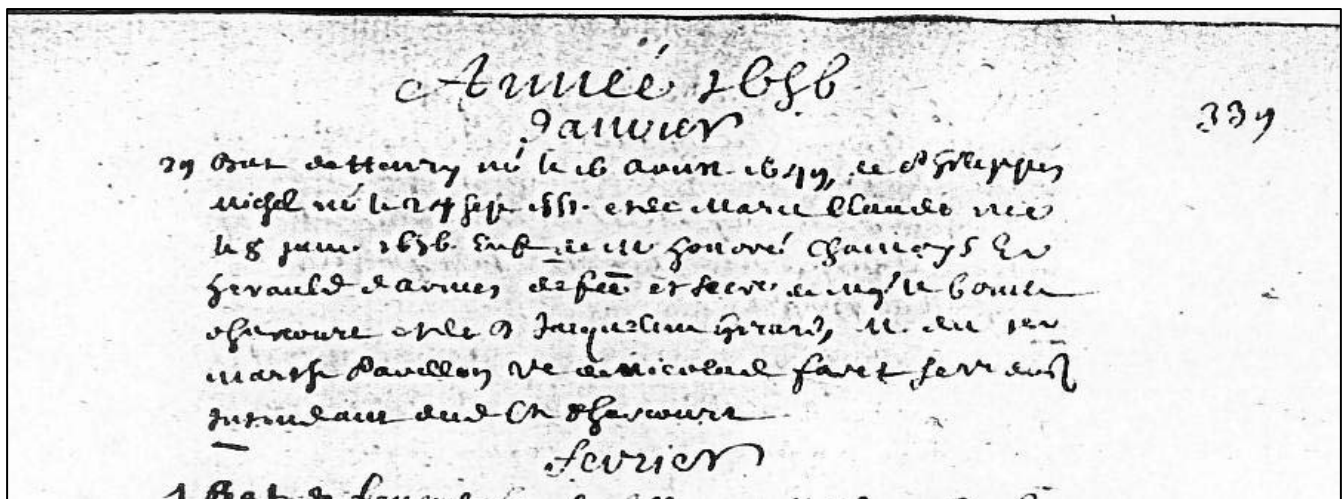 Année 1656
Janvier
339
29 Bat de Henry né le 16 Avril 1649, de Philippes
Michel né le 24 sep 1651 et de Marie Claude née
le 8 janv 1656 Enf de Honoré Chamoys Er
herauld d'armes de fce et secre de Mgr le Comte
dharcourt et de Jacqueline Girard,
Marthe Pavillon ve de Nicolas faret secr
Intendant dud Cte dharcourt
fevrier
1 Bat de